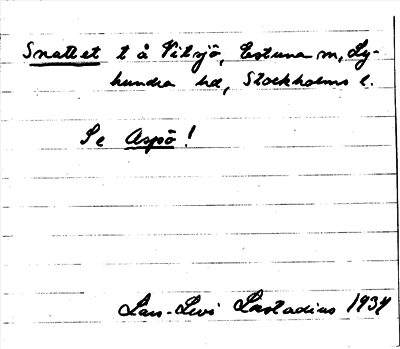 Snattet t å Vitsjö, Estuna sn, Ly-
hundra hd, Stockholms l.
Se Aspö!
Lars-Levi Læstadius 1937